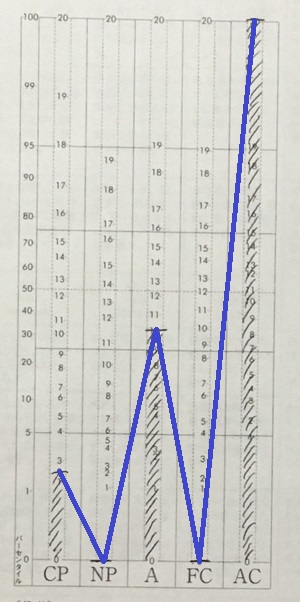 100 20 20 20 20 20
99 19
95 18 19 19 19 19
90 17 18 18 18 18
80 16 17 17 17 17
70 15 16 16 16 16
60 14 15 15 15 15
50 13 14 14 14 14
40 12 13 13 13 13
30 11 12 12 12 12
20 10 11 11 11 11
10 9 10 10 10
5 8 9 9 9
1 7 8 8 8
6 7 7 7
5 6 6 6
4 5 5 5
3 4 4 4
3 3
2 2 2
1 1
0 0 0
パーセンタイル
CP NP A FC AC